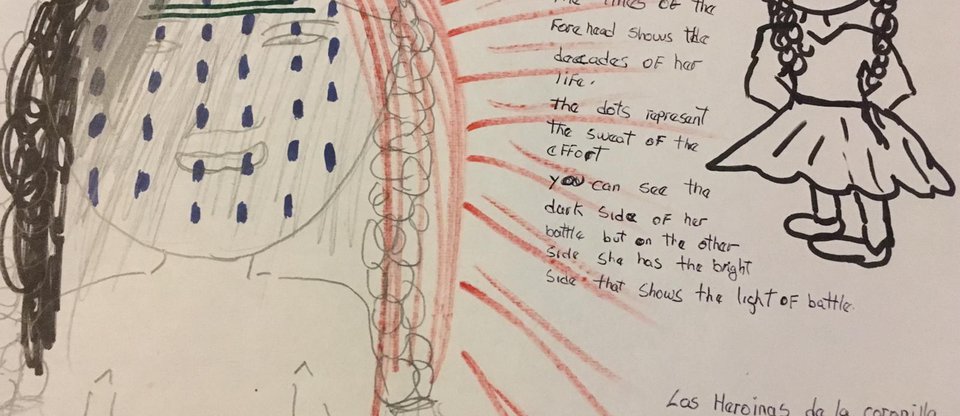 The lines of the
Fore head shows the
deccades of her
life.
the dots represent
the sweat of the
effort
you can see the
dark side of her
battle but on the other
side she has the bright
side that shows the light of battle.
Las Heroinas de la coronilla